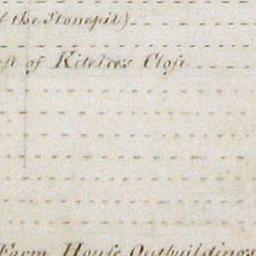 f the Stonepit)
st of Kitelees Close
Farm House Outbuildings